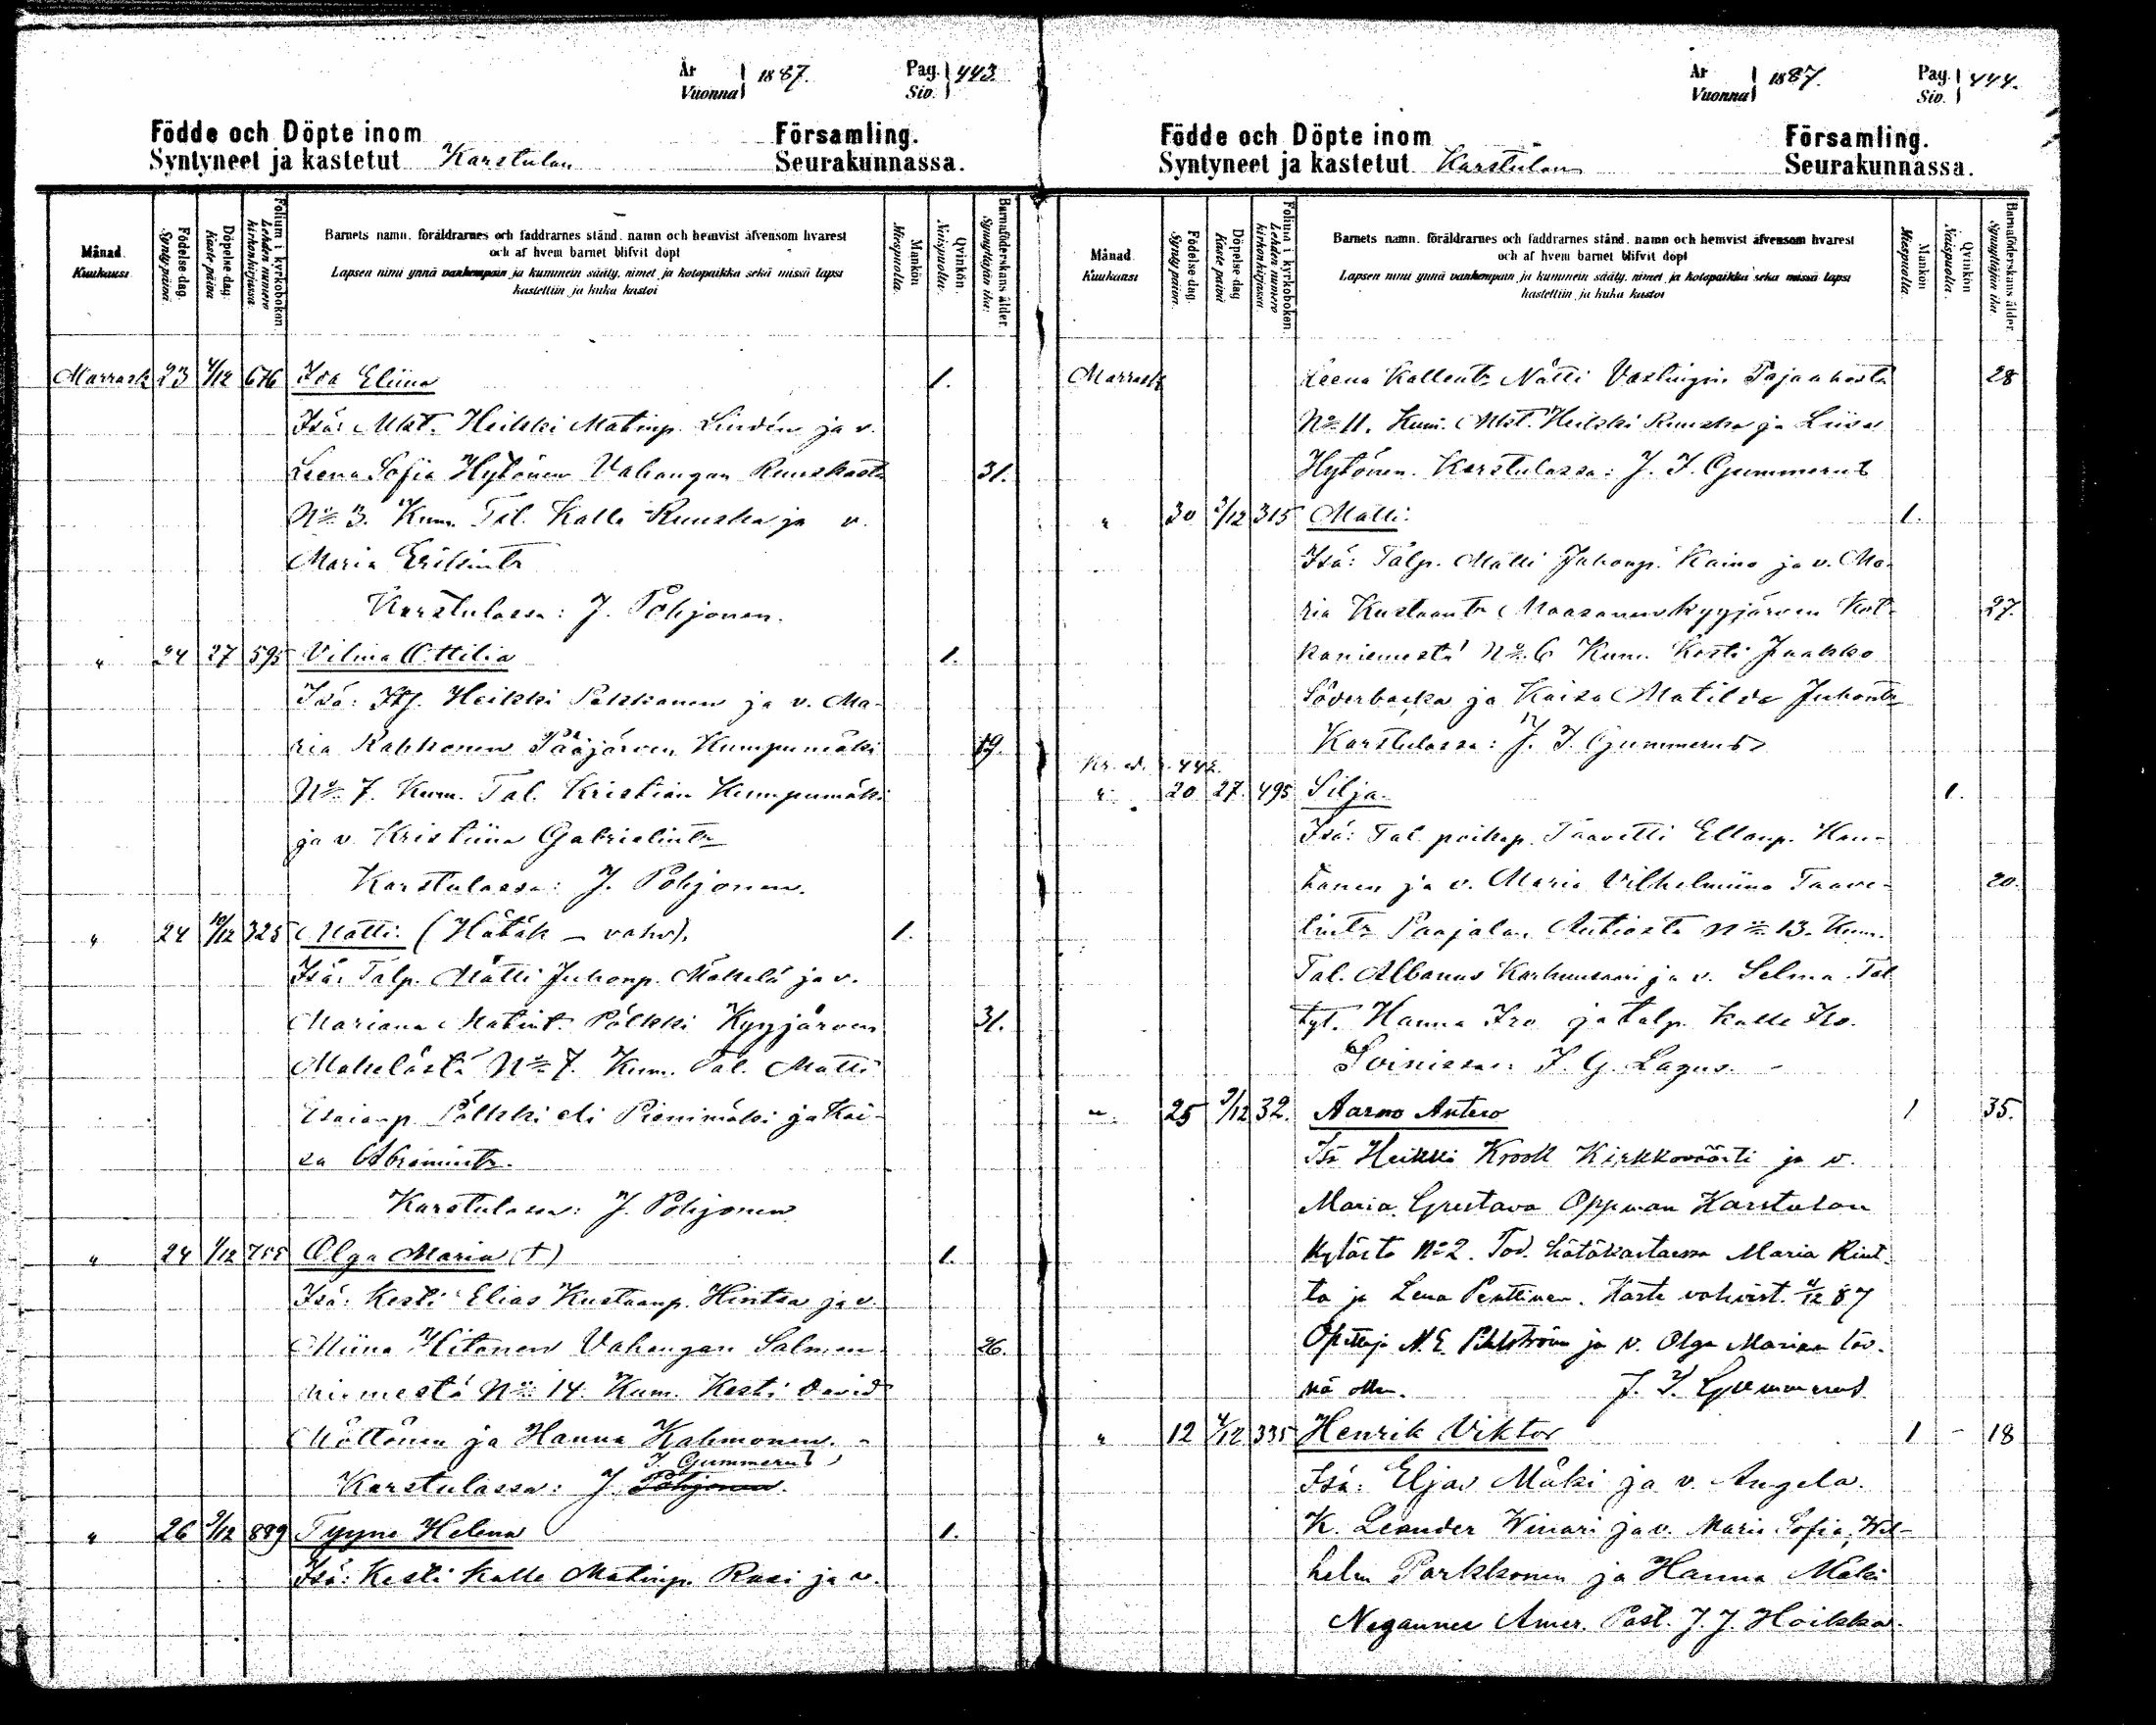 År 1887. Pag. 443.
Vuonna Siv.
Födde och Döpte inom Församling.
Syntyneet ja kastetut Karstulan Seurakunnassa.
Månad Kuukausi
Födelse-dag. Syntypäivä.
Döpelse-dag. Kastepäivä
Folium i kyrkoboken. Lehden numero kirkonkirjassa.
Barnets namn, föräldrarnes och faddrarnes stånd, namn och hemvist äfvensom hvarest
och af hvem barnet blifvit döpt
Lapsen nimi ynnä vanhempain ja kummein sääty, nimet ja kotopaikka sekä missä lapsi
kastettiin ja kuka kastoi
Mankön Miespuolta.
Qvinkön. Naispuolta.
Barnaföderskans ålder. Synnyttäjän ikä:
Marrask 23 4/12 676 Ida Eliina 1.
Isä: Mkt. Heikki Matinp. Lindén ja v.
Leena Sofia Hytönen Vahangan Ruuskasta 31.
No 3. Kum. Tal. Kalle Ruuska ja v.
Maria Erikintr
Karstulassa: J. Pohjonen.
" 24 27 595 Vilma Ottilia 1.
Isä: Its. Heikki Pekkanen ja v. Ma-
ria Rahkonen Pääjärven Kumpumäki 19
No 7. Kum. Tal. Kristian Kumpumäki
ja v. Kristiina Gabrielintr
Karstulassa: J. Pohjonen.
" 24 10/12 325 Matti. (Hätäk – vahv). 1.
Isä: Talp. Matti Juhonp. Mäkelä ja v.
Mariana Matint. Pölkki Kyyjärven 31.
Mäkelästä No 7. Kum. Tal. Matti
Esaianp Pölkki eli Pienimäki ja Kai-
sa Abramintr.
Karstulassa: J. Pohjonen
" 24 1/12 755 Olga Maria (†) 1.
Isä: Kesti Elias Kustaanp. Hintsa ja v.
Miina Hitonen Vahangan Salmen- 26.
niemestä No 14. Kum. Kesti David
Möttönen ja Hanna Kahmonen.
J. Gummerus
Karstulassa: J. Pohjonen.
" 26 3/12 889 Tyyne Helena 1.
Isä: Kesti Kalle Matinp. Rasi ja v.
År 1887. Pag. 444.
Vuonna Siv.
Födde och Döpte inom Församling.
Syntyneet ja kastetut Karstulan Seurakunnassa.
Månad Kuukausi
Födelse-dag. Syntypäivä.
Döpelse-dag Kastepäivä
Folium i kyrkoboken. Lehden numero kirkonkirjassa.
Barnets namn, föräldrarnes och faddrarnes stånd, namn och hemvist äfvensom hvarest
och af hvem barnet blifvit döpt
Lapsen nimi ynnä vanhempain ja kummein sääty, nimet ja kotopaikka sekä missä lapsi
kastettiin ja kuka kastoi
Mankön Miespuolta.
Qvinkön Naispuolta.
Barnaföderskans ålder Synnyttäjän ikä
Marrask Leena Kallentr Nätti Vastingin Pajaahosta 28
No 11. Kum. Mkt. Heikki Ruuska ja Liisa
Hytönen. Karstulassa: J. I. Gummerus
" 30 3/12 315 Matti. 1.
Isä: Talp. Matti Juhonp. Kaino ja v. Ma-
ria Kustaantr Maasanen Kyyjärven Kot- 27.
kaniemestä No 6 Kum. Kesti Jaakko
Söderbacka ja Kaisa Matilda Juhontr
Karstulassa: J. I. Gummerus
442.
" 20 27. 495 Silja. 1.
Isä: Tal. poikap. Taavetti Ellanp. Hau-
tanen ja v. Maria Vilhelmiina Taave- 20.
tintr Paajalan Autiosta No 13. Kum.
Tal. Albanus Karhunsaari ja v. Selma. Tal
tyt. Hanna Iso ja talp. Kalle Iso.
Soinissa: F. G. Lagus.
" 25 3/12 32. Aarno Antero 1 35.
Isä Heikki Krook Kirkkoväästi ja v.
Maria Gustava Oppman Karstulan
kylästä No 2. Tod. hätäkastaessa Maria Rint-
ta ja Lena Penttinen. Kaste vahvist. 4/12 87
Opettaja N. E. Pihlström ja v. Olga Marian läs-
nä ollen. J. I. Gummerus
" 12 4/12 335 Henrik Viktor 1 – 18
Isä: Eljas Mäki ja v. Angela.
K. Leander Winari ja v. Maria Sofia, Wil-
helm Parkkonen ja Hanna Mäki
Negaunee Amer. Past. J. J. Hoikka.